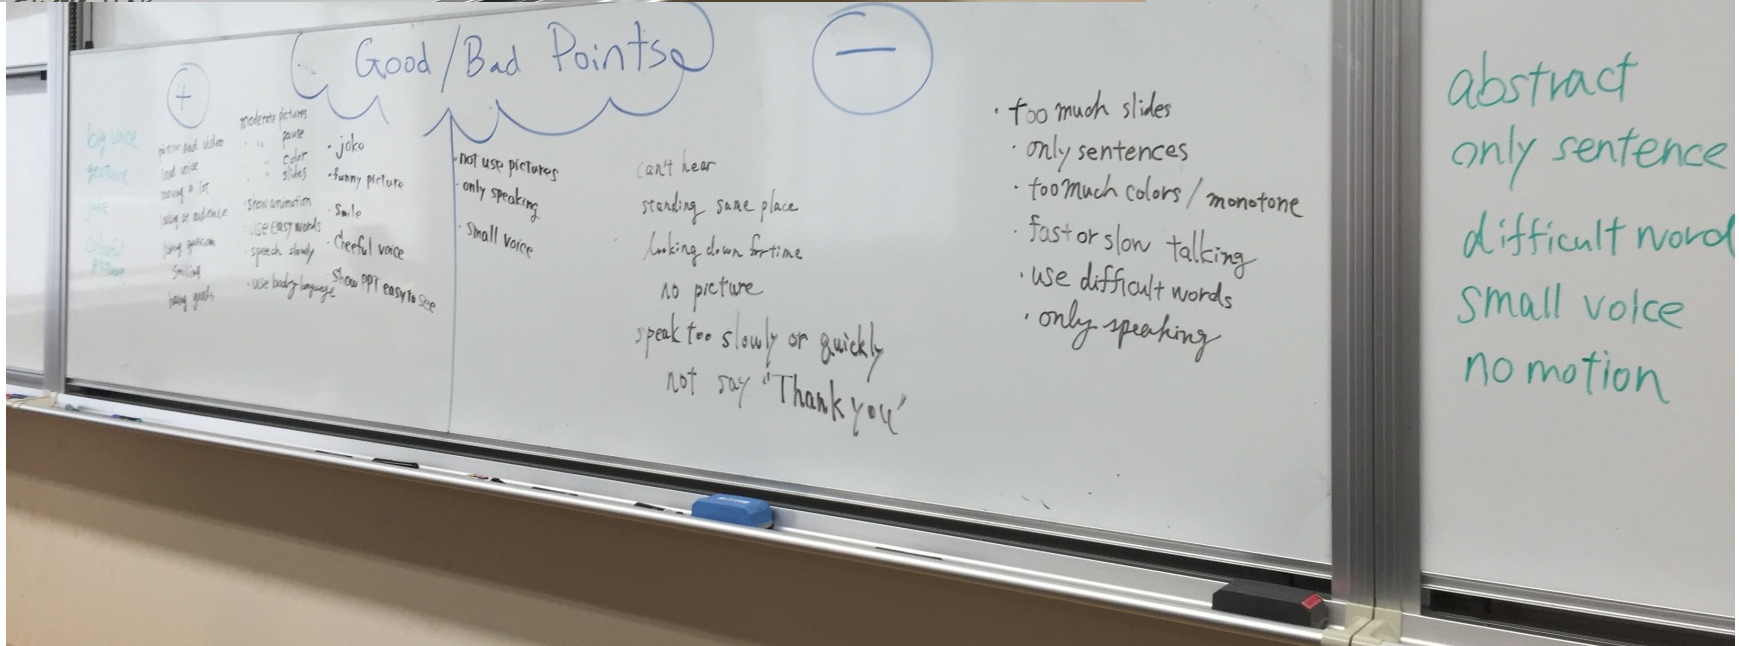 Good/Bad Points
+
−
big voice
gesture
joke
colorful
picture
picture and video
loud voice
moving a lot
looking at audience
smiling
moderate pictures
" pause
" color
" slides
・show animation
・use easy words
・speech slowly
・use body language
・joko
・funny picture
・Smile
・Cheeful voice
・Show PPT easy to see
・not use pictures
・only speaking
・small voice
can't hear
standing same place
looking down for time
no picture
speak too slowly or quickly
not say "Thank you"
・too much slides
・only sentences
・too much colors / monotone
・fast or slow talking
・use difficult words
・only speaking
abstract
only sentence
difficult word
small voice
no motion